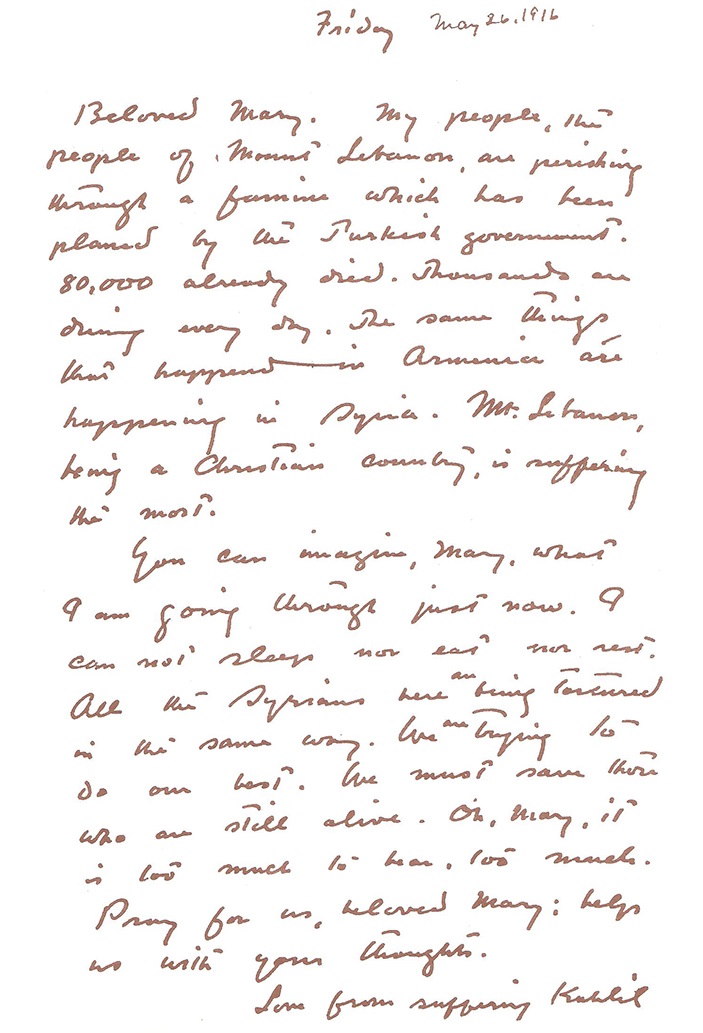 Friday May 26, 1916
Beloved Mary. My people, the
people of Mount Lebanon, are perishing
through a famine which has been
planed by the Turkish government.
80,000 already died. Thousands are
dying every day. The same things
that happened in Armenia are
happening in Syria. Mt. Lebanon,
being a Christian country, is suffering
the most.
You can imagine, Mary, what
I am going through just now. I
can not sleep nor eat nor rest.
All the Syrians here are being tortured
in the same way. We are trying to
do our best. We must save those
who are still alive. Oh, Mary, it
is too much to bear, too much.
Pray for us, beloved Mary: help
us with your thoughts.
Love from suffering Kahlil